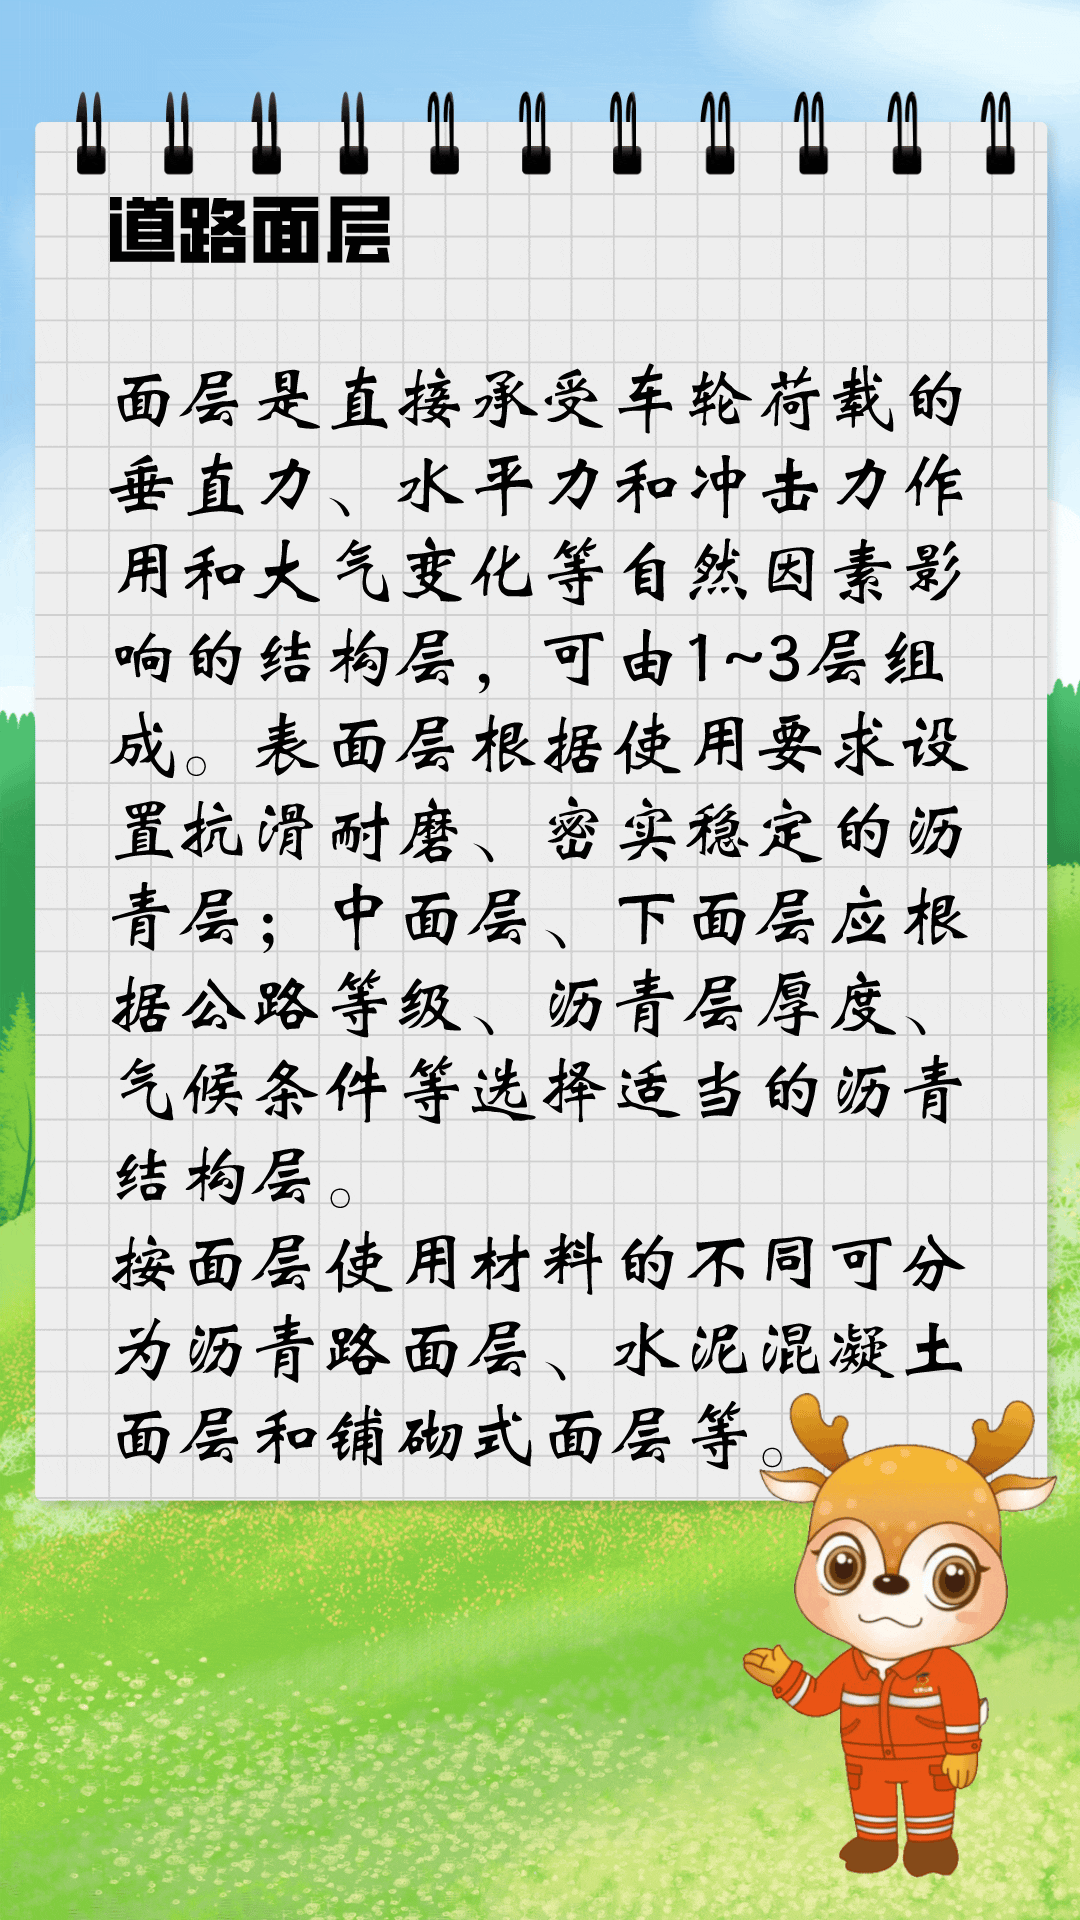 道路面层
面层是直接承受车轮荷载的
垂直力、水平力和冲击力作
用和大气变化等自然因素影
响的结构层，可由1~3层组
成。表面层根据使用要求设
置抗滑耐磨、密实稳定的沥
青层；中面层、下面层应根
据公路等级、沥青层厚度、
气候条件等选择适当的沥青
结构层。
按面层使用材料的不同可分
为沥青路面层、水泥混凝土
面层和铺砌式面层等。